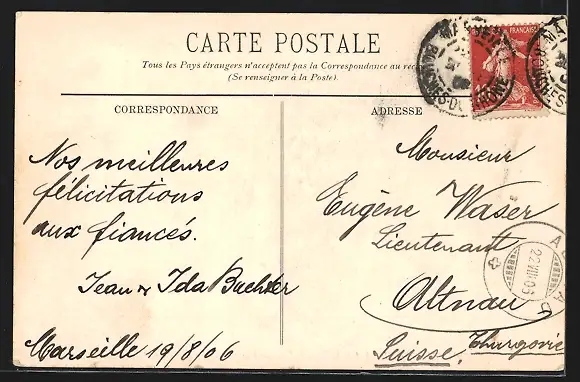 CARTE POSTALE
Tous les Pays étrangers n'acceptent pas la Correspondance au
(Se renseigner à la Poste).
CORRESPONDANCE
Nos meilleures
félicitations
aux fiancés.
Jean & Ida Buchter
Marseille 19/8/06
ADRESSE
Monsieur
Eugène Waser
Lieutenant
Altnau
Suisse, Thurgovie
FRANÇAISE
22.VIII.06